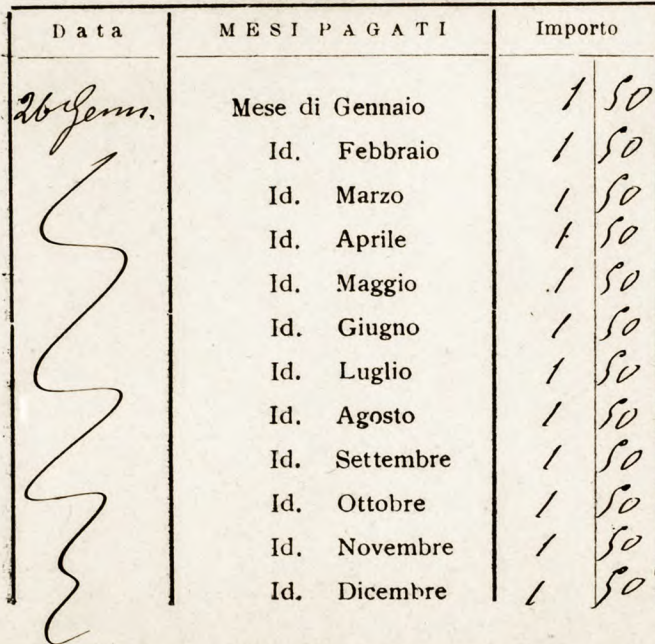 Data MESI PAGATI Importo
26 Genn. Mese di Gennaio 1 50
Id. Febbraio 1 50
Id. Marzo 1 50
Id. Aprile 1 50
Id. Maggio 1 50
Id. Giugno 1 50
Id. Luglio 1 50
Id. Agosto 1 50
Id. Settembre 1 50
Id. Ottobre 1 50
Id. Novembre 1 50
Id. Dicembre 1 50